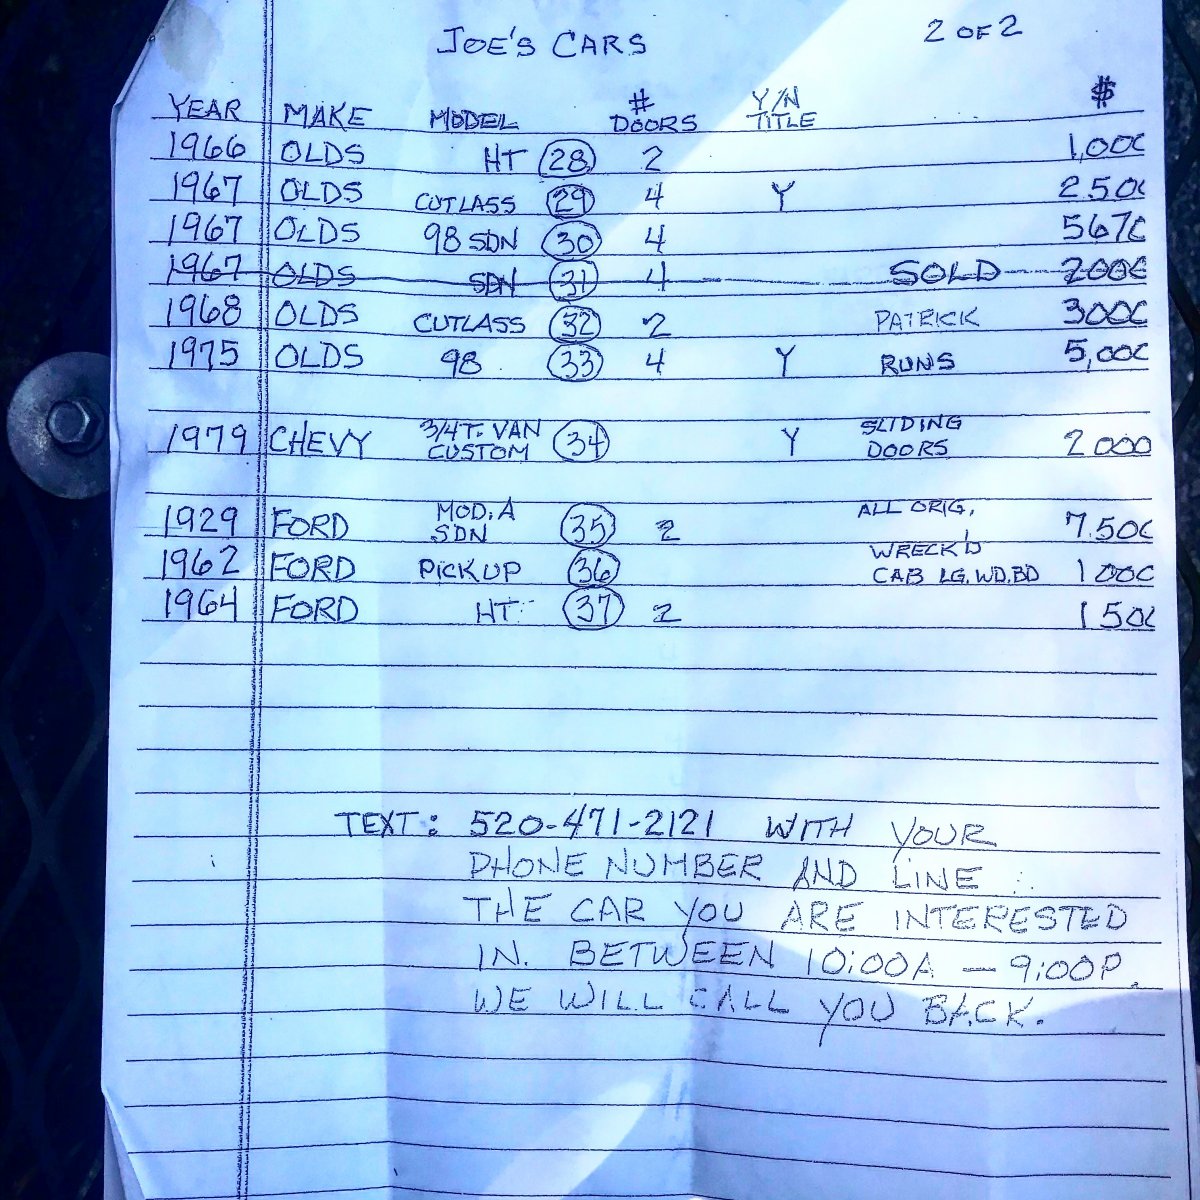 JOE'S CARS 2 OF 2
YEAR MAKE MODEL # DOORS Y/N TITLE $
1966 OLDS HT 28 2 1,000
1967 OLDS CUTLASS 29 4 Y 2500
1967 OLDS 98 SDN 30 4 5670
1967 OLDS SDN 31 4 SOLD 2000
1968 OLDS CUTLASS 32 2 PATRICK 3000
1975 OLDS 98 33 4 Y RUNS 5,000
1979 CHEVY 3/4 T. VAN CUSTOM 34 Y SLIDING DOORS 2000
1929 FORD MOD. A SDN 35 2 ALL ORIG. 7500
1962 FORD PICKUP 36 WRECK'D CAB LG. WD. BD 1000
1964 FORD HT 37 2 1500
TEXT: 520-471-2121 WITH YOUR
PHONE NUMBER AND LINE
THE CAR YOU ARE INTERESTED
IN. BETWEEN 10:00A — 9:00P.
WE WILL CALL YOU BACK.